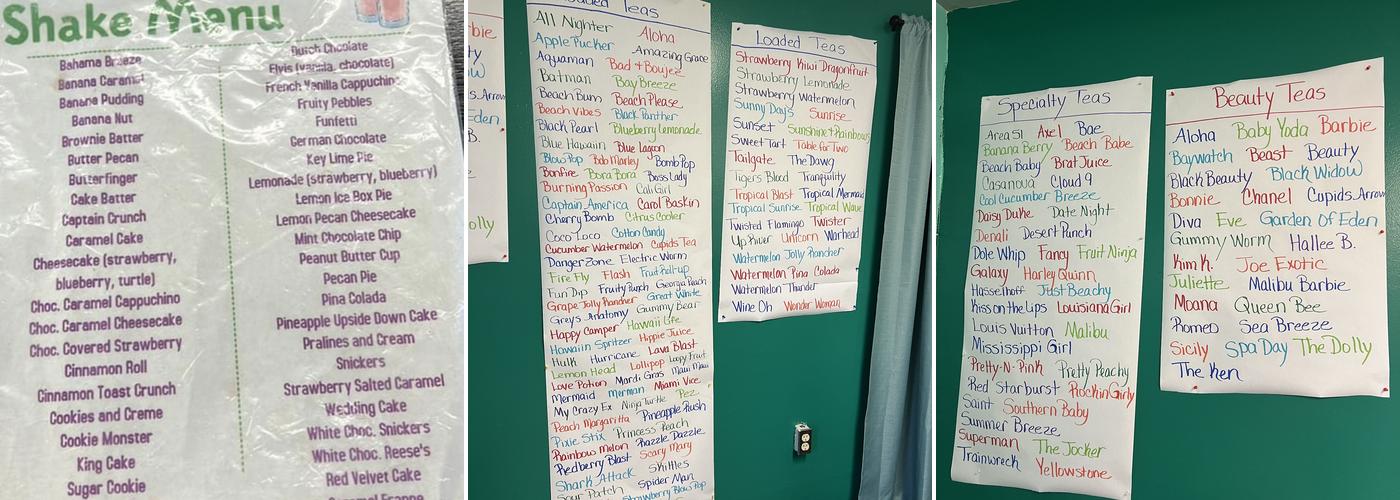 Shake Menu
Bahama Breeze
Banana Caramel
Banana Pudding
Banana Nut
Brownie Batter
Butter Pecan
Butterfinger
Cake Batter
Captain Crunch
Caramel Cake
Cheesecake (strawberry,
blueberry, turtle)
Choc. Caramel Cappuchino
Choc. Caramel Cheesecake
Choc. Covered Strawberry
Cinnamon Roll
Cinnamon Toast Crunch
Cookies and Creme
Cookie Monster
King Cake
Sugar Cookie
Dutch Choclate
Elvis (vanilla, chocolate)
French Vanilla Cappuchino
Fruity Pebbles
Funfetti
German Chocolate
Key Lime Pie
Lemonade (strawberry, blueberry)
Lemon Ice Box Pie
Lemon Pecan Cheesecake
Mint Chocolate Chip
Peanut Butter Cup
Pecan Pie
Pina Colada
Pineapple Upside Down Cake
Pralines and Cream
Snickers
Strawberry Salted Caramel
Wedding Cake
White Choc. Snickers
White Choc. Reese's
Red Velvet Cake
Caramel Frappe
rbie
Arrow
Eden
B.
olly
Loaded Teas
All Nighter Aloha
Apple Pucker Amazing Grace
Aquaman Bad + Boujee
Batman Bay Breeze
Beach Bum Beach Please
Beach Vibes Black Panther
Black Pearl Blueberry Lemonade
Blue Hawaiin Blue Lagoon
Blow Pop Bob Marley Bomb Pop
Bonfire Bora Bora Boss Lady
Burning Passion Cali Girl
Captain America Carol Baskin
Cherry Bomb Citrus Cooler
Coco Loco Cotton Candy
Cucumber Watermelon Cupids Tea
Danger Zone Electric Worm
Fire Fly Flash Fruit Roll-up
Fun Dip Fruity Punch Georgia Peach
Grape Jolly Rancher Great White
Greys Anatomy Gummy Bear
Happy Camper Hawaii Life
Hawaiin Spritzer Hippie Juice
Hulk Hurricane Lava Blast
Lemon Head Lollipop Loopy Fruit
Love Potion Mardi Gras Maui Maui
Mermaid Merman Miami Vice
My Crazy Ex Ninja Turtle Pez
Peach Margaritta Pineapple Rush
Pixie Stix Princess Peach
Rainbow Melon Razzle Dazzle
Redberry Blast Scary Mary
Shark Attack Skittles
Sour Patch Spider Man
Strawberry Blow Pop
Loaded Teas
Strawberry Kiwi Dragonfruit
Strawberry Lemonade
Strawberry Watermelon
Sunny Days Sunrise
Sunset Sunshine + Rainbows
Sweet Tart Table for Two
Tailgate The Dawg
Tigers Blood Tranquility
Tropical Blast Tropical Mermaid
Tropical Sunrise Tropical Wave
Twisted Flamingo Twister
Up River Unicorn Warhead
Watermelon Jolly Rancher
Watermelon Pina Colada
Watermelon Thunder
Wine Oh Wonder Woman
Specialty Teas
Area 51 Axel Bae
Banana Berry Beach Babe
Beach Baby Brat Juice
Casanova Cloud 9
Cool Cucumber Breeze
Daisy Duke Date Night
Denali Desert Punch
Dole Whip Fancy Fruit Ninja
Galaxy Harley Quinn
Hasselhoff Just Beachy
Kiss on the Lips Louisiana Girl
Louis Vuitton Malibu
Mississippi Girl
Pretty-N-Pink Pretty Peachy
Red Starburst Rockin Girly
Saint Southern Baby
Summer Breeze
Superman The Jocker
Trainwreck Yellowstone
Beauty Teas
Aloha Baby Yoda Barbie
Baywatch Beast Beauty
Black Beauty Black Widow
Bonnie Chanel Cupids Arrow
Diva Eve Garden Of Eden
Gummy Worm Hallee B.
Kim K. Joe Exotic
Juliette Malibu Barbie
Moana Queen Bee
Romeo Sea Breeze
Sicily Spa Day The Dolly
The Ken